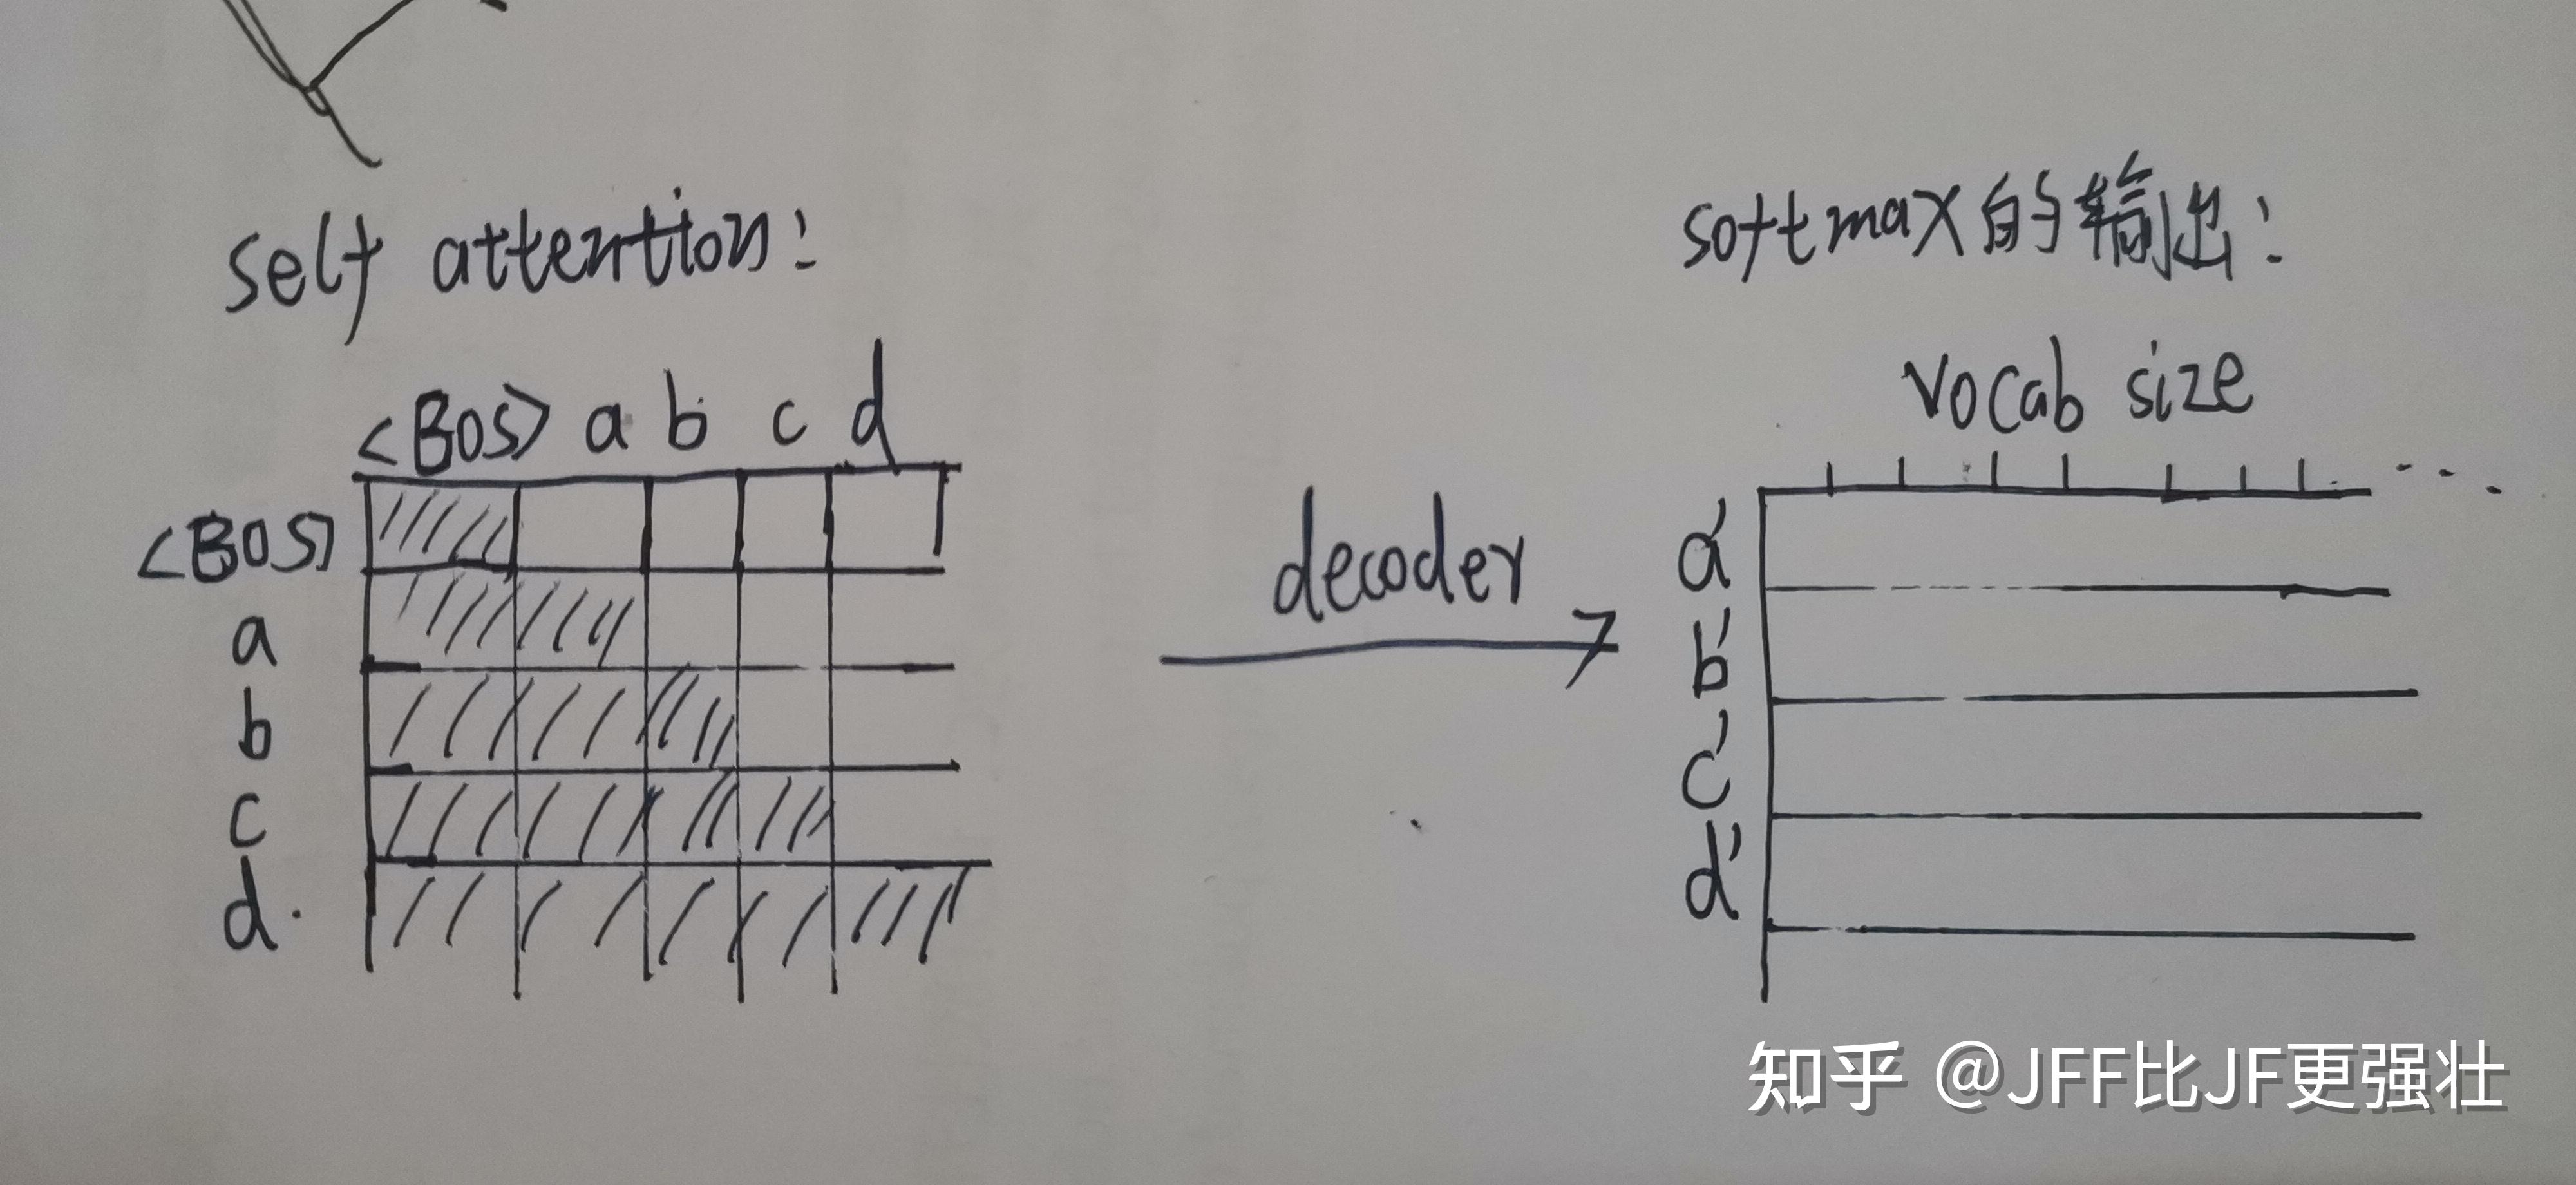 self attention:
softmax的输出:
<BOS> a b c d
vocab size
<BOS>
a
b
c
d.
decoder
a'
b'
c'
d'
知乎 @JFF比JF更强壮